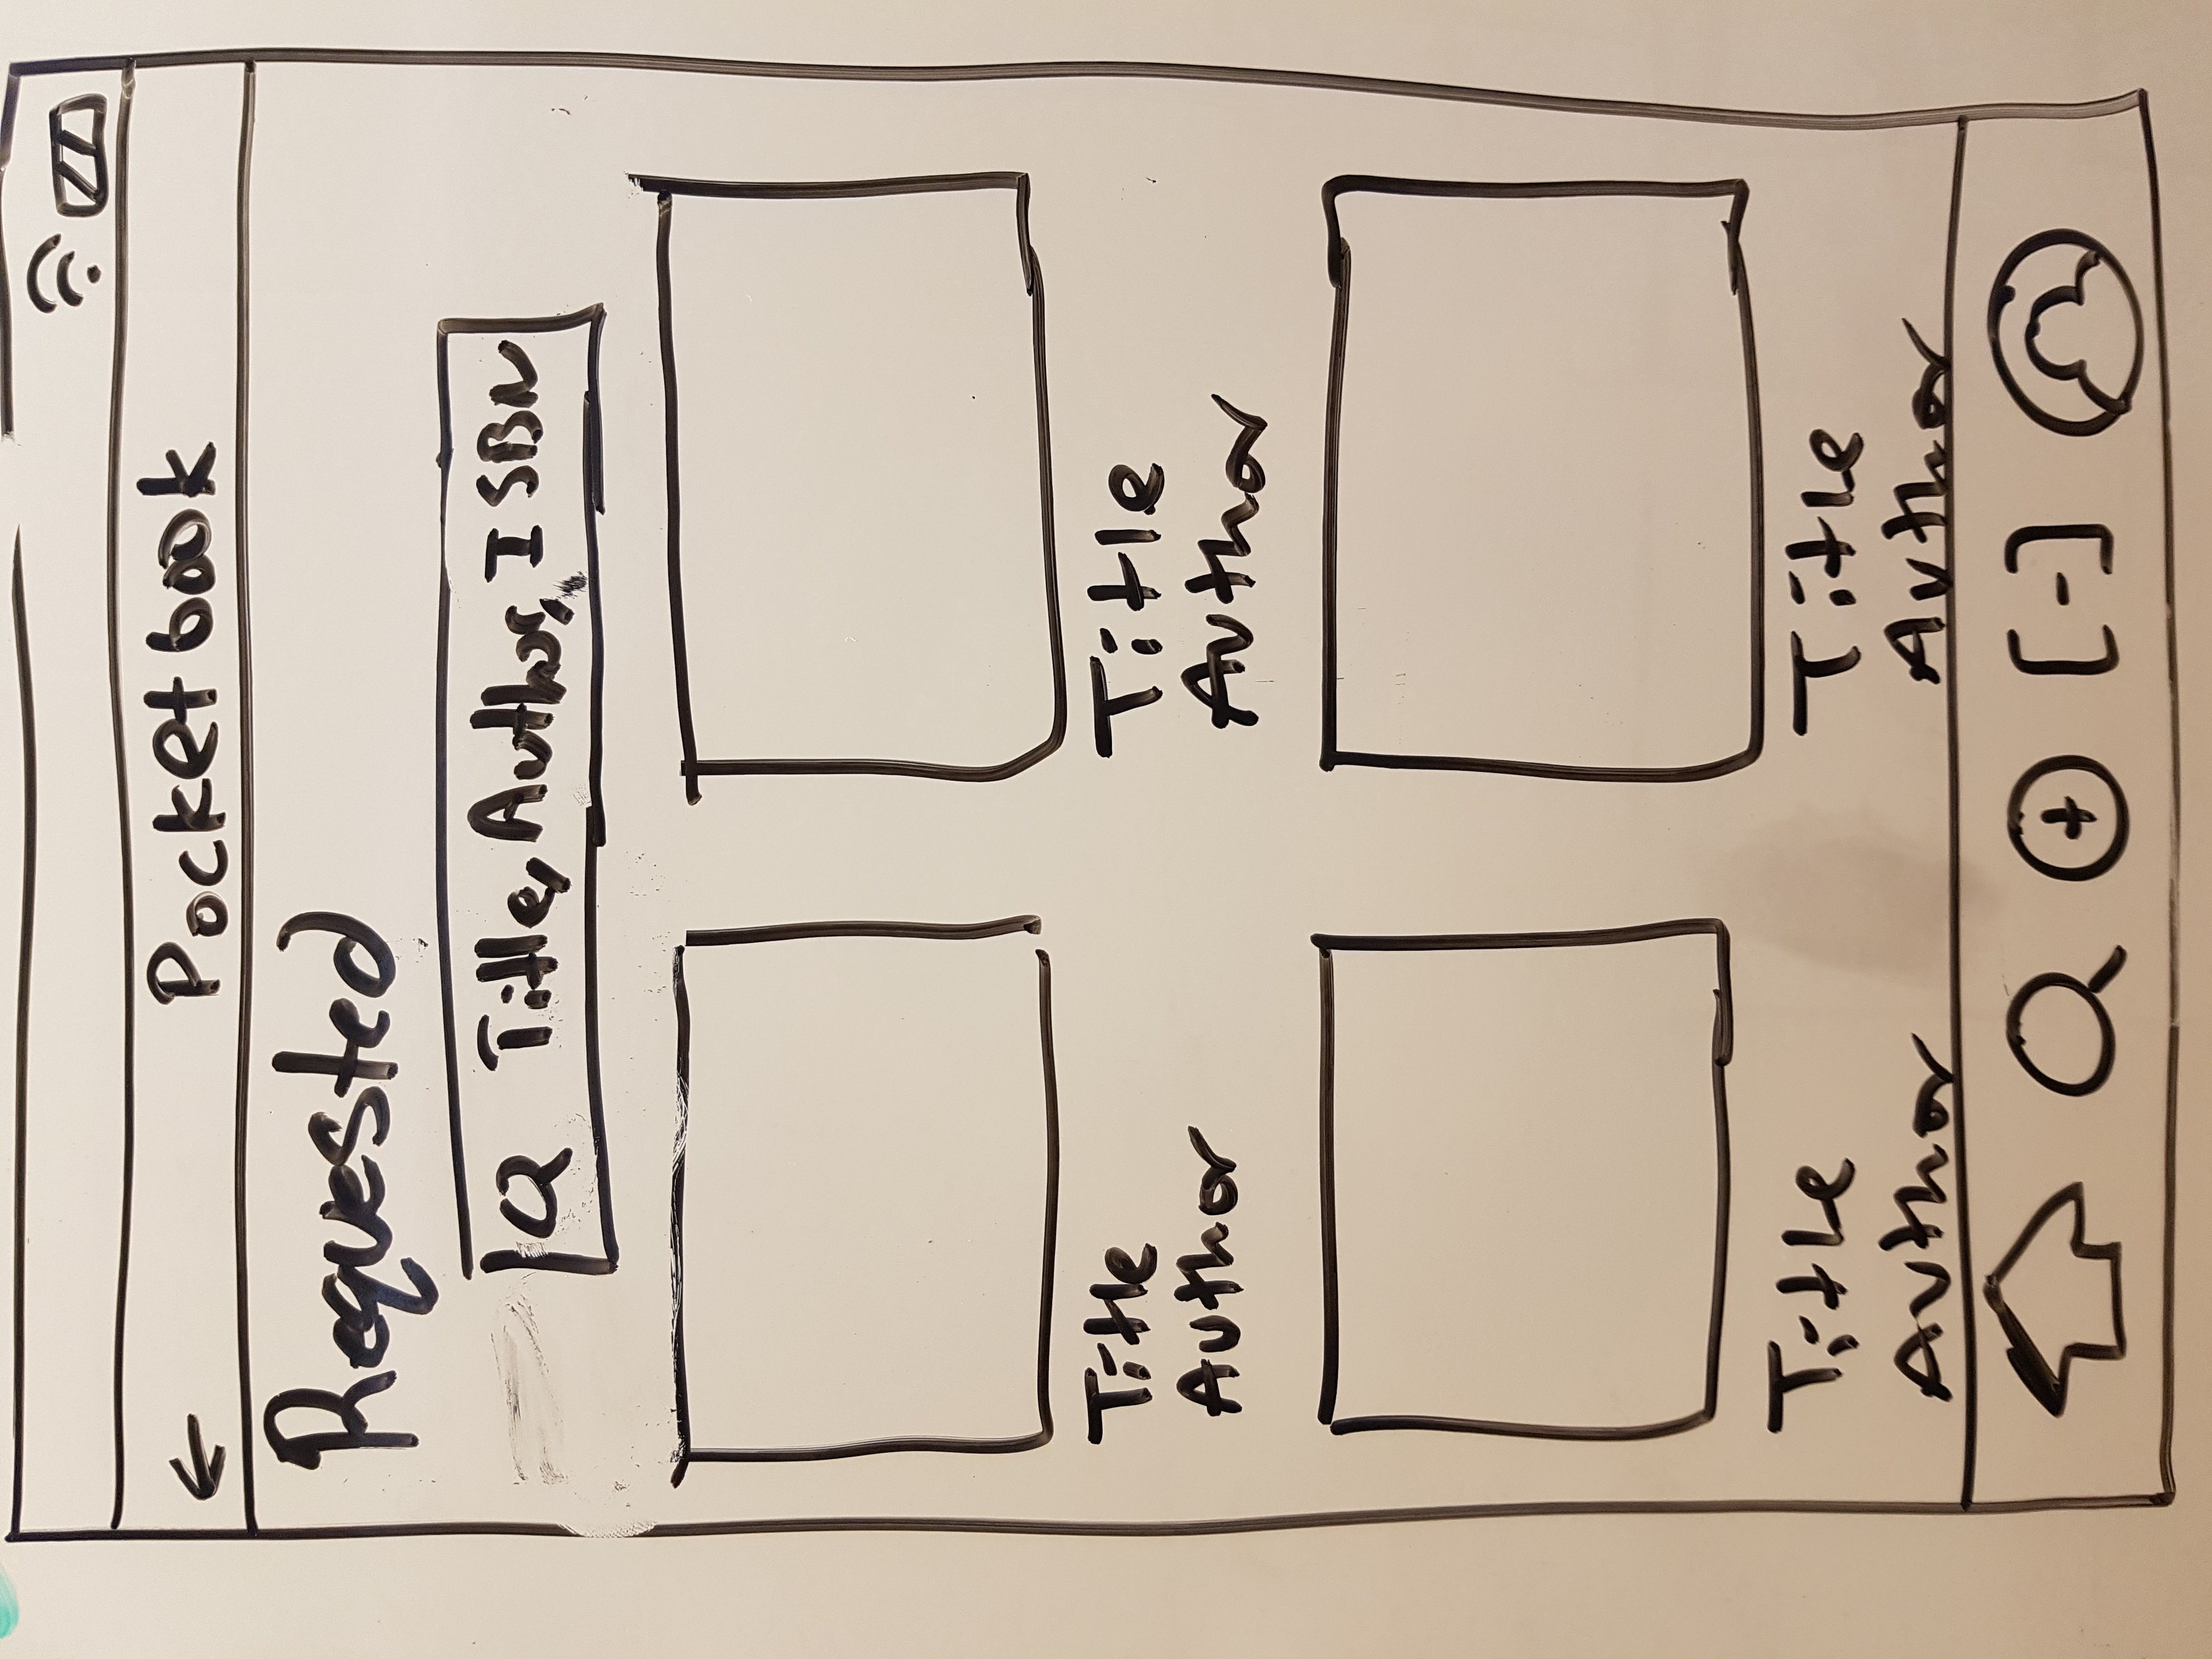 Pocketbook
Requested
Title, Author, ISBN
Title
Author
Title
Author
Title
Author
Title
Author